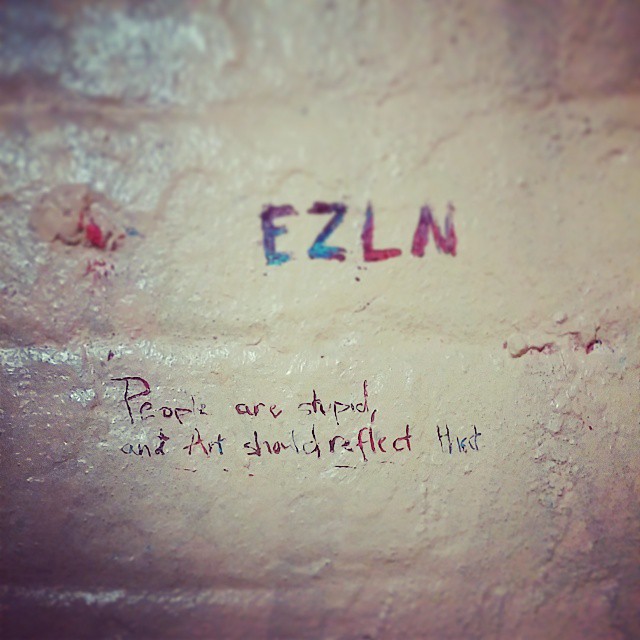 EZLN
People are stupid,
and Art should reflect that